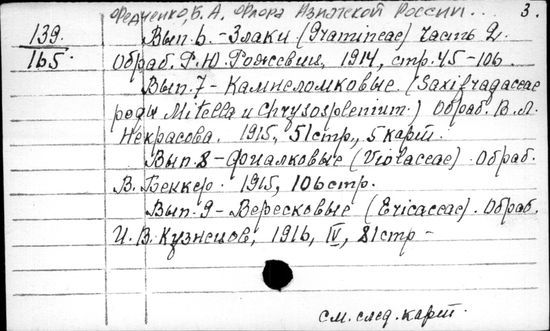 Федченко, Б. А. Флора Азиатской России... 3.
139. Вып. 6. - Злаки (Gramineae) часть 2.
165. Обраб. Р. Ю. Рожевиц, 1914, стр. 45-106
Вып. 7 - Камнеломковые. (Saxifragaceae
роды Mitella и Chrysosplenium.) Обраб. В. Л.
Некрасова. 1915, 51 стр., 5 карт.
Вып. 8 - Фиалковые (Violaceae). Обраб.
В. Беккер. 1915, 106 стр.
Вып. 9 - Вересковые (Ericaceae). Обраб.
И. В. Кузнецов, 1916, IV, 81 стр -
см. след. карт.